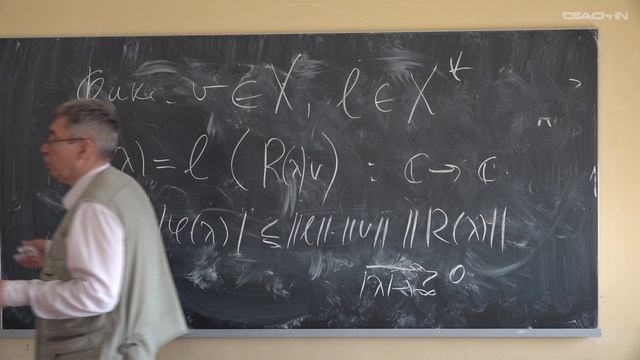 TEACH-IN
Фикс. v ∈ X, l ∈ X*
λ) = l (R(λ)v) : ℂ → ℂ
|φ(λ)| ≤ ||l|| · ||v|| ||R(λ)||
|λ|→∞ 0